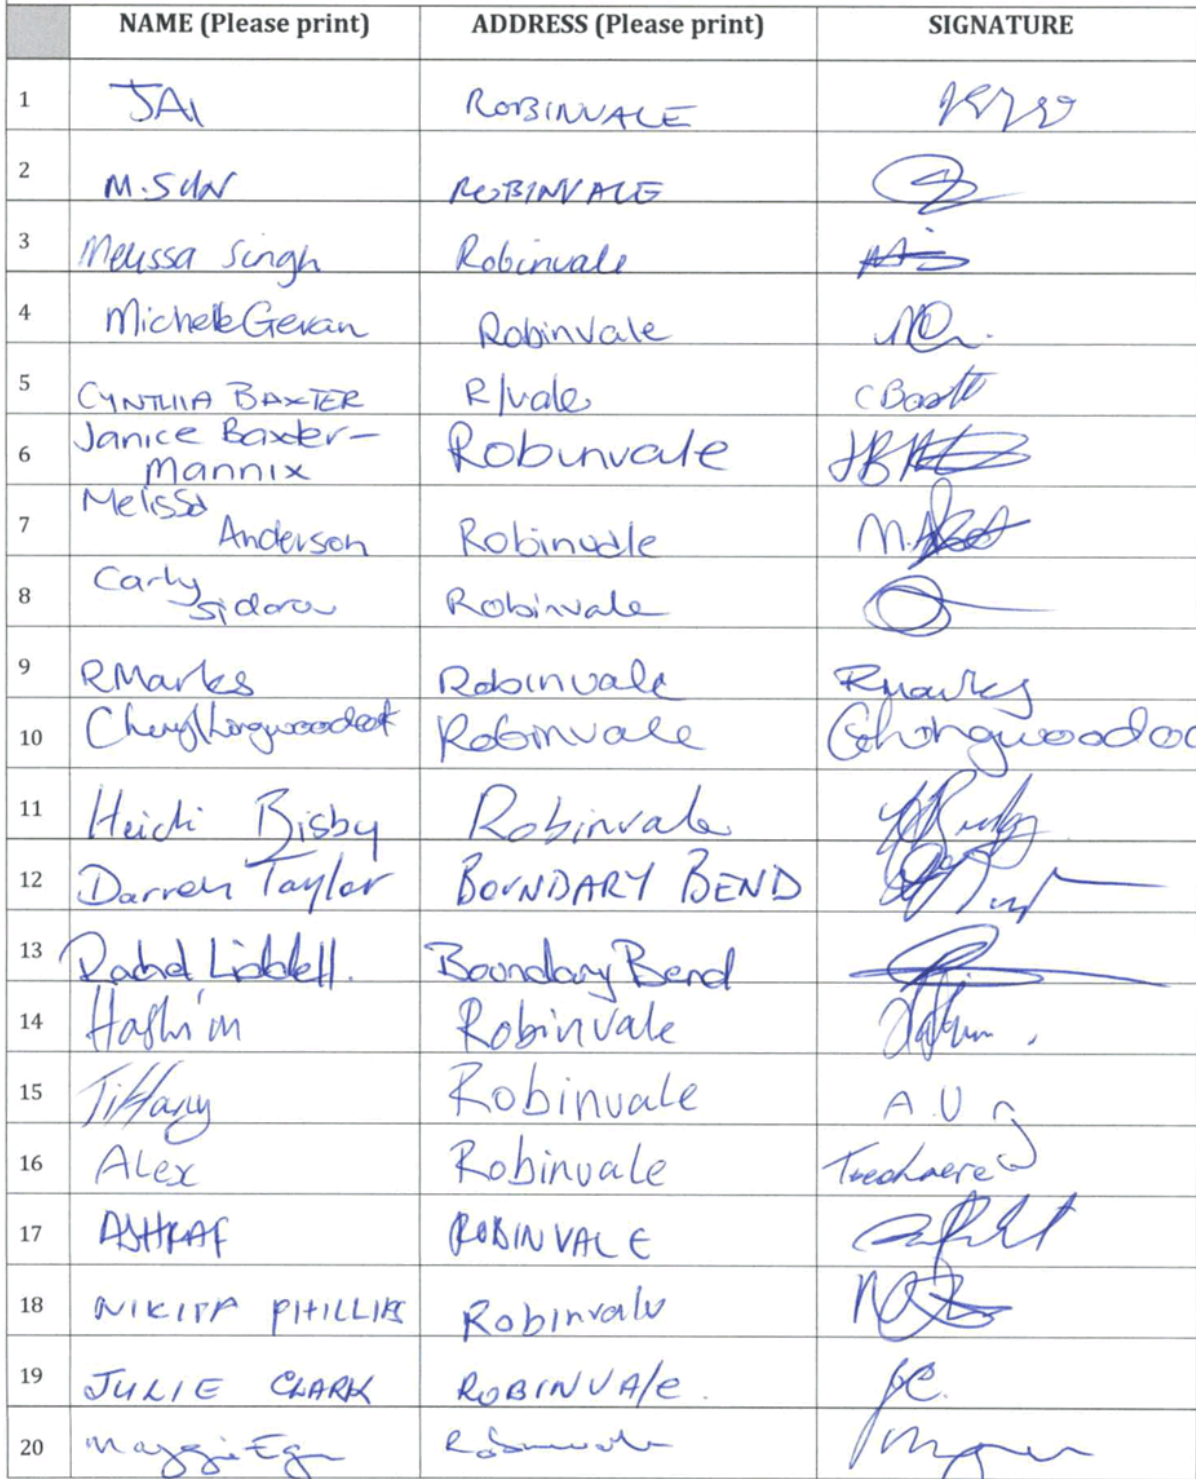 NAME (Please print) ADDRESS (Please print) SIGNATURE
1 JAI ROBINVALE
2 M.SUN ROBINVALE
3 Melissa Singh Robinvale
4 Michelle Gevan Robinvale
5 CYNTHIA BAXTER R/vale
6 Janice Baxter- Robinvale
Mannix
7 Melissa
Anderson Robinvale
8 Carly
Sidorov Robinvale
9 RMarks Robinvale RMarks
10 Cheryl Robinvale
11 Heidi Bisby Robinvale
12 Darren Taylor BOUNDARY BEND
13 Rachel Liddell. Boundary Bend
14 Hashim Robinvale
15 Tiffany Robinvale A.U
16 ALex Robinvale
17 ASHRAF ROBINVALE
18 NIKITA PHILLIPS Robinvale
19 JULIE CLARK ROBINVAle. JC.
20 Maggie Robinvale